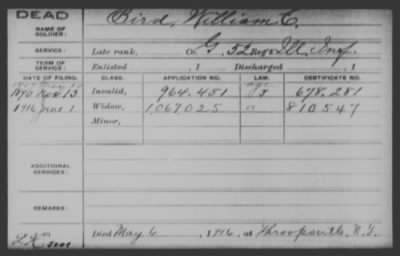 DEAD
NAME OF SOLDIER:
Bird, William C.
SERVICE:
Late rank, Co. G, 52 Reg't Ill. Inf.
TERM OF SERVICE:
Enlisted , 1 Discharged , 1
DATE OF FILING. CLASS. APPLICATION NO. LAW. CERTIFICATE NO.
Nov 13 Invalid, 964.451 678.281
1916 June 1 Widow, 1,067,025 810547
Minor,
ADDITIONAL SERVICES:
REMARKS:
Died May 6 , 1916, at Throopsville, N.Y.